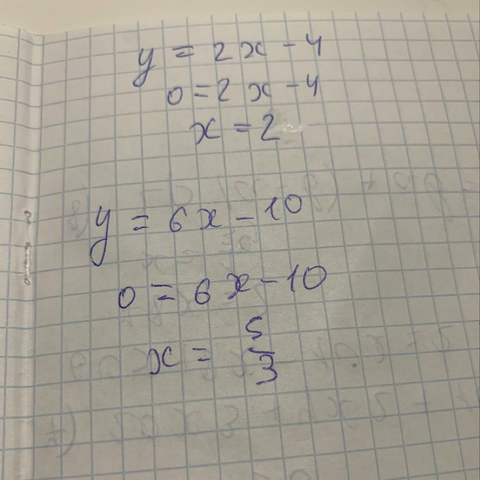 y = 2x - 4
0 = 2x - 4
x = 2
y = 6x - 10
0 = 6x - 10
x = 5/3